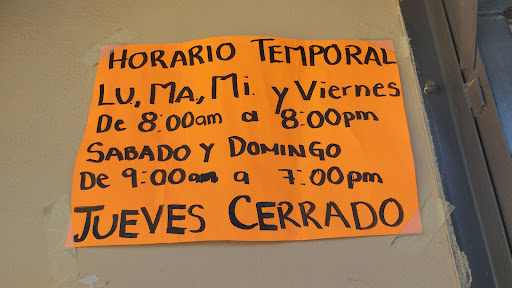 HORARIO TEMPORAL
LU, MA, Mi. y Viernes
De 8:00am a 8:00pm
SABADO Y DOMINGO
De 9:00am a 7:00pm
JUEVES CERRADO